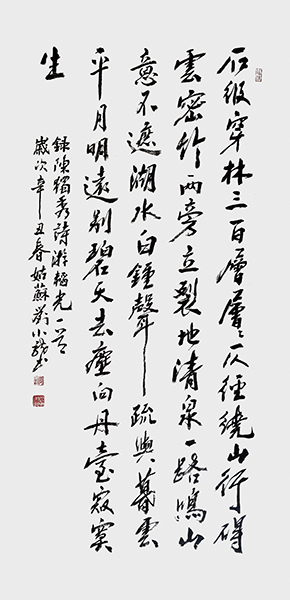 石級穿林三百層層〻仄徑繞山行碍
雲密竹兩旁立裂地清泉一路鳴山
意不遮湖水白鍾聲疏與暮雲
平月明遠別碧天去塵向丹臺寂寞
生
録陳獨秀詩游韜光一首
歲次辛丑春姑蘇劉小龍書